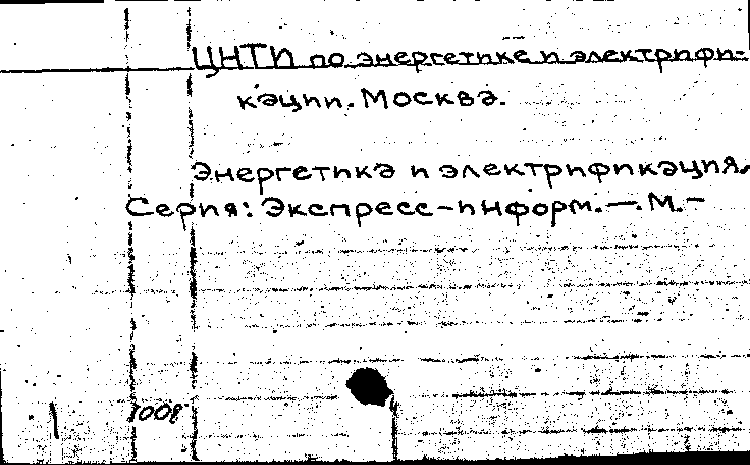 ЦНТИ по энергетике и электрифи-
кации. Москва.
Энергетика и электрификация.
Серия: Экспресс-информ. —. М. –
1008